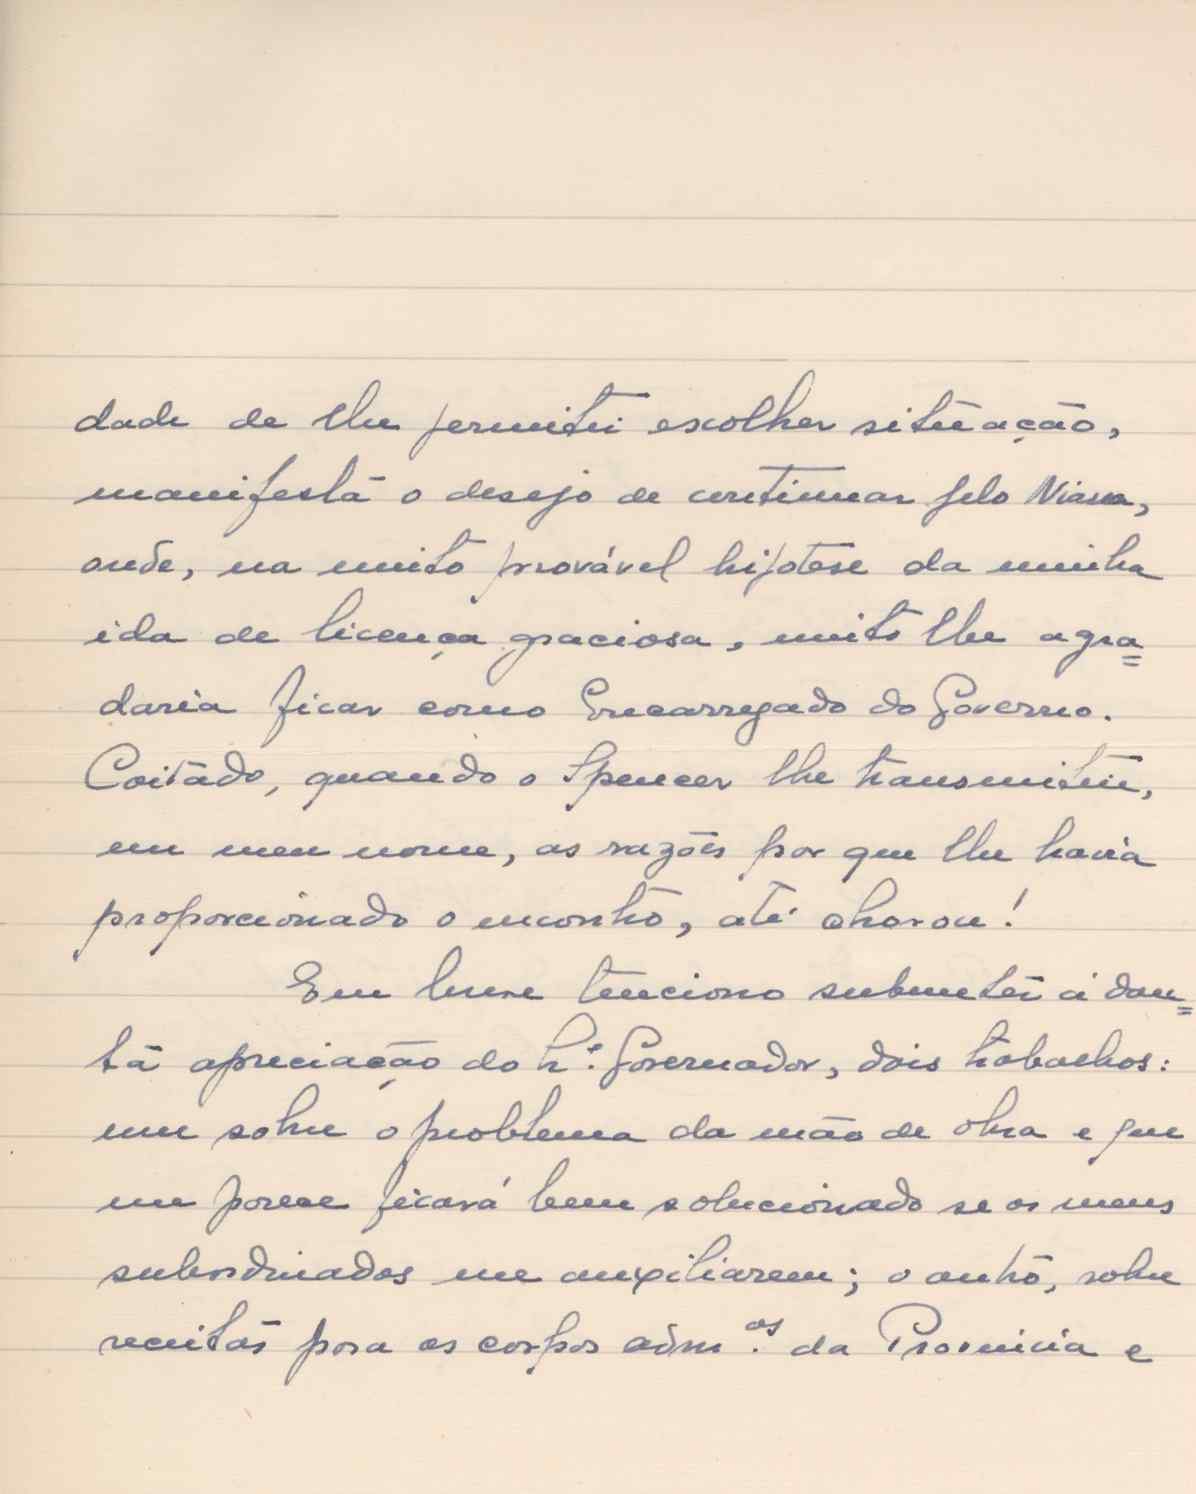 dade de lhe permitir escolher situação,
manifesta o desejo de continuar pelo Niassa,
onde, na muito provável hipotese da minha
ida de licença graciosa, muito lhe agra=
daria ficar como Encarregado do Governo.
Coitado, quando o Spencer lhe transmitiu,
em meu nome, as razões por que lhe havia
proporcionado o encontro, até chorou!
Em breve tenciono submeter á dou=
ta apreciação do Governador, dois trabalhos:
um sobre o problema da mão de obra e que
me parece ficará bem solucionado se os meus
subordinados me auxiliarem; o outro, sobre
receitas para os corpos adm.os da Provincia e